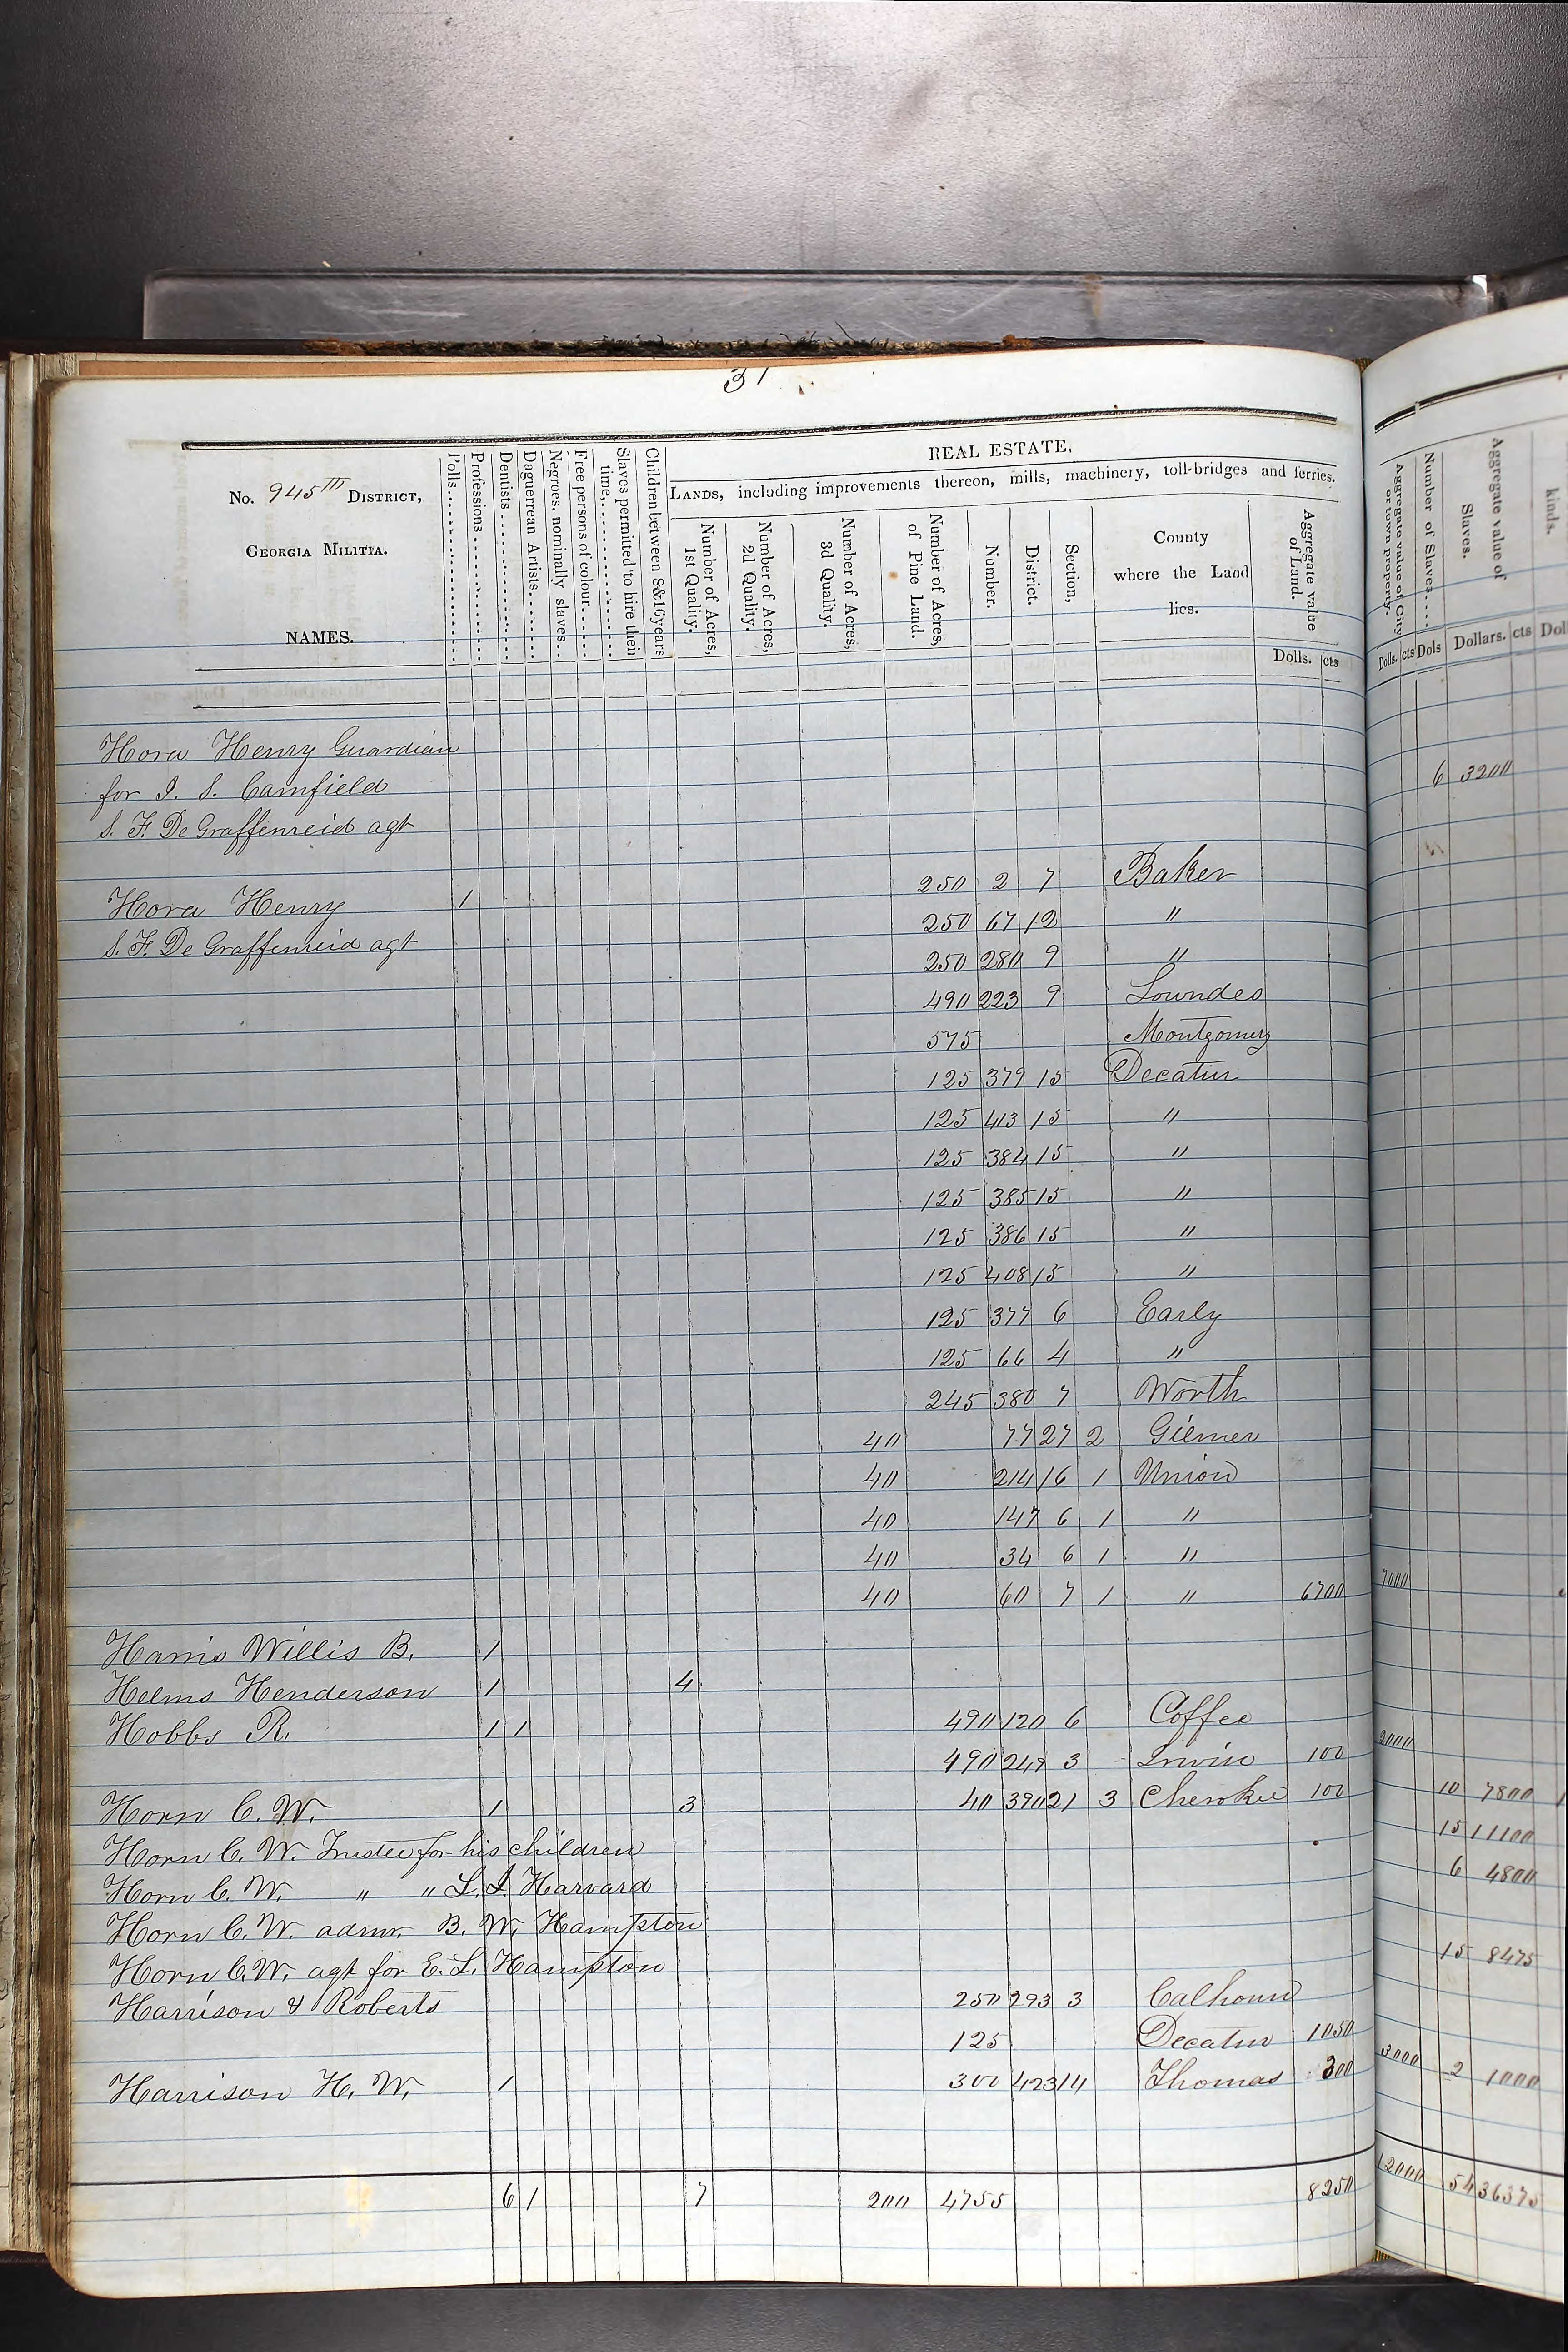 31
No. 945th DISTRICT,
GEORGIA MILITIA.
NAMES.
Polls
Professions
Dentists
Daguerrean Artists
Negroes, nominally slaves
Free persons of colour
Slaves permitted to hire their time,
Children between 8 & 16 years
REAL ESTATE,
LANDS, including improvements thereon, mills, machinery, toll-bridges and ferries.
Number of Acres, 1st Quality.
Number of Acres, 2d Quality.
Number of Acres, 3d Quality.
Number of Acres, of Pine Land.
Number.
District.
Section,
County where the Land lies.
Aggregate value of Land.
Dolls. cts
Aggregate value of City or town property.
Number of Slaves
Aggregate value of Slaves.
kinds.
Dolls. cts Dols Dollars. cts Dol
Hora Henry Guardian 6 3200
for I. S. Camfield
S. F. De Graffenreid agt
250 2 7 Baker
Hora Henry 1 250 67 12 "
S. F. De Graffenreid agt 250 280 9 "
490 223 9 Lowndes
575 Montgomery
125 379 15 Decatur
125 413 15 "
125 384 15 "
125 385 15 "
125 386 15 "
125 408 15 "
125 377 6 Early
125 66 4 "
245 380 7 Worth
40 77 27 2 Gilmer
40 214 16 1 Union
40 147 6 1 "
40 34 6 1 "
40 60 7 1 " 6700 7000
Harris Willis B. 1
Helms Henderson 1 4
Hobbs R. 1 1 490 120 6 Coffee
490 249 3 Irwin 100 2000
Horn C. W. 1 3 40 390 21 3 Cherokee 100 10 7800
Horn C. W. Trustee for his children 15 11100
Horn C. W. " " L. I. Harvard 6 4800
Horn C. W. admr. B. W. Hampton
Horn C. W. agt for E. L. Hampton 15 8475
Harrison & Roberts 250 293 3 Calhoun
125 Decatur 1050
Harrison H. W. 1 300 423 14 Thomas 300 3000 2 1000
6 1 7 200 4755 8250 12000 54 36375